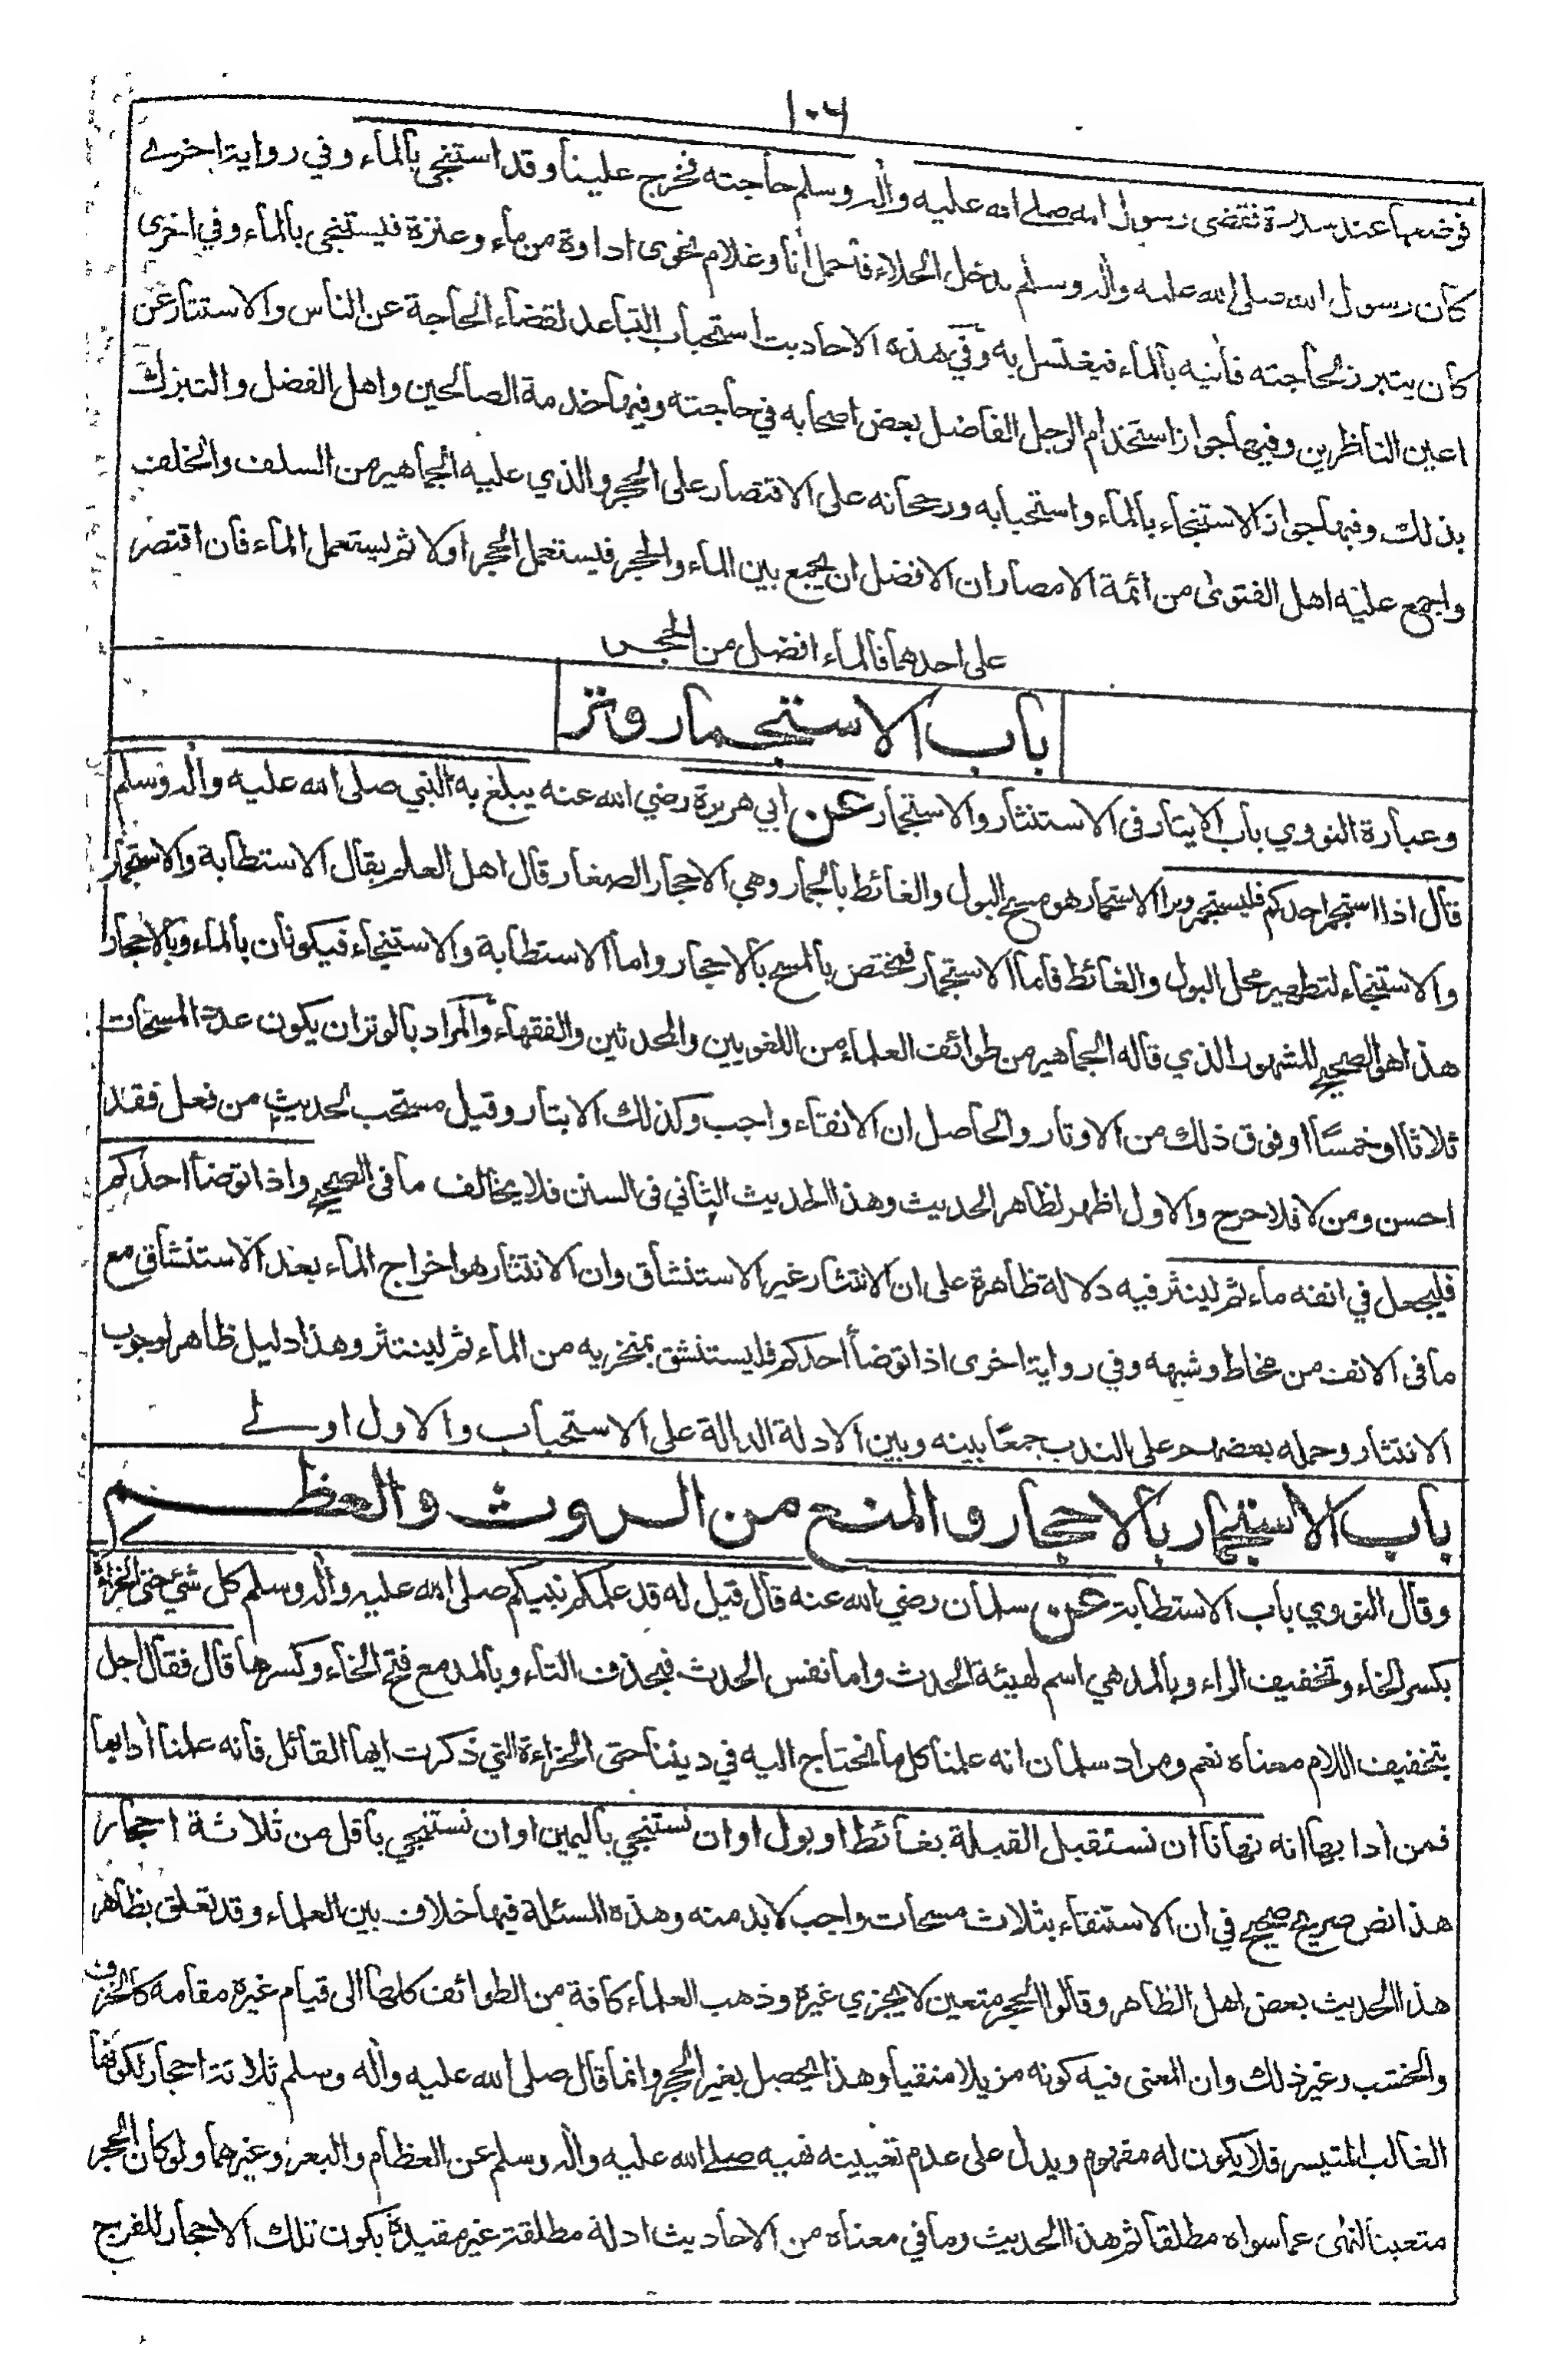 ١٠٦
فوضعها عند سدرة فقضى رسول الله صلے الله عليه واٰله وسلم حاجته فخرج علينا وقد استنجى بالماء وفي رواية اخرے
كان رسول الله صلى الله عليه واٰله وسلم يدخل الخلاء فاحمل انا وغلام نحوى اداوة من ماء وعنزة فيستنجى بالماء وفي اخرى
كان يتبرز لحاجته فاٰتيه بالماء فيغتسل به وفي هذه الاحاديث استحباب التباعد لقضاء الحاجة عن الناس والاستتار عن
اعين الناظرين وفيها جواز استخدام الرجل الفاضل بعض اصحابه في حاجته وفيها خدمة الصالحين واهل الفضل والتبرك
بذلك وفيها جواز الاستنجاء بالماء واستحبابه ورجحانه على الاقتصار على الحجر والذي عليه الجماهير من السلف والخلف
واجمع عليه اهل الفتوى من ائمة الامصار ان الافضل ان يجمع بين الماء والحجر فيستعمل الحجر اولا ثم يستعمل الماء فان اقتصر
على احدهما فالماء افضل من الحجر
باب الاستجمار وتر
وعبارة النووي باب الايتار فى الاستنثار والاستجمار عن ابي هريرة رضي الله عنه يبلغ به النبي صلى الله عليه واٰله وسلم
قال اذا استجمر احدكم فليستجمر وترا الاستجمار هو مسح البول والغائط بالجمار وهي الاحجار الصغار قال اهل العلم يقال الاستطابة والاستجمار
والاستنجاء لتطهير محل البول والغائط فاما الاستجمار فيختص بالمسح بالاحجار واما الاستطابة والاستنجاء فيكونان بالماء وبالاحجار
هذا هو الصحيح المشهور الذي قاله الجماهير من طوائف العلماء من اللغويين والمحدثين والفقهاء والمراد بالوتر ان يكون عدة المسحات
ثلاثا او خمسًا او فوق ذلك من الاوتار والحاصل ان الانقاء واجب وكذلك الايتار وقيل مستحب لحديث من فعل فقد
احسن ومن لا فلا حرج والاول اظهر لظاهر الحديث وهذا الحديث الثاني فى السنن فلا يخالف ما فى الصحيح واذا توضأ احدكم
فليجعل في انفه ماء ثم لينثر فيه دلالة ظاهرة على ان الانتثار غير الاستنشاق وان الانتثار هو اخراج الماء بعد الاستنشاق مع
ما فى الانف من مخاط وشبهه وفي رواية اخرى اذا توضأ احدكم فليستنشق بمنخريه من الماء ثم لينتثر وهذا دليل ظاهر لوجوب
الانتثار وحمله بعضهم على الندب جمعًا بينه وبين الادلة الدالة على الاستحباب والاول اولے
باب الاستجمار بالاحجار والمنع من الروث والعظم
وقال النووي باب الاستطابة عن سلمان رضي الله عنه قال قيل له قد علمكم نبيكم صلى الله عليه واٰله وسلم كل شئ حتى الخراءة
بكسر الخاء وتخفيف الراء وبالمد هي اسم لهيئة الحدث واما نفس الحدث فبحذف التاء وبالمد مع فتح الخاء وكسرها قال فقال اجل
بتخفيف اللام معناه نعم ومراد سلمان انه علمنا كل ما نحتاج اليه في ديننا حتى الخراءة التي ذكرت ايها القائل فانه علمنا اٰدابها
فمن اٰدابها انه نهانا ان نستقبل القبلة بغائط او بول او ان نستنجي باليمين او ان نستنجي باقل من ثلاثة احجار
هذا نص صريح صحيح في ان الاستنقاء بثلاث مسحات واجب لا بد منه وهذه المسئلة فيها خلاف بين العلماء وقد تعلق بظاهر
هذا الحديث بعض اهل الظاهر وقالوا الحجر متعين لا يجزي غيره وذهب العلماء كافة من الطوائف كلها الى قيام غيره مقامه كالخزف
والخشب وغير ذلك وان المعنى فيه كونه مزيلا منقيا وهذا يحصل بغير الحجر وانما قال صلى الله عليه واٰله وسلم ثلاثة احجار لكونها
الغالب المتيسر فلا يكون له مفهوم ويدل على عدم تعيينه نهيه صلے الله عليه واٰله وسلم عن العظام والبعر وغيرهما ولو كان الحجر
متعينا لنهى عما سواه مطلقا ثم هذا الحديث وما في معناه من الاحاديث ادلة مطلقة غير مقيدة بكون تلك الاحجار للفرج